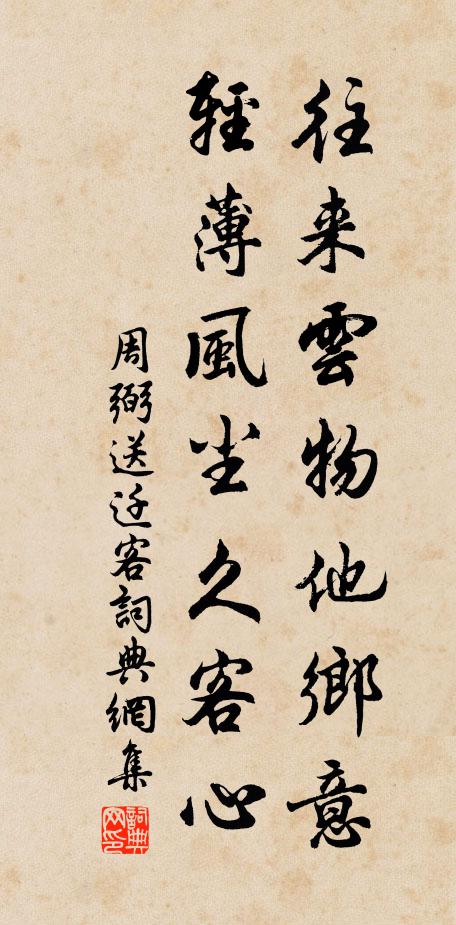 往来雲物他鄉意
輕薄風尘久客心
周弼送迁客詞典網集
詞典網印